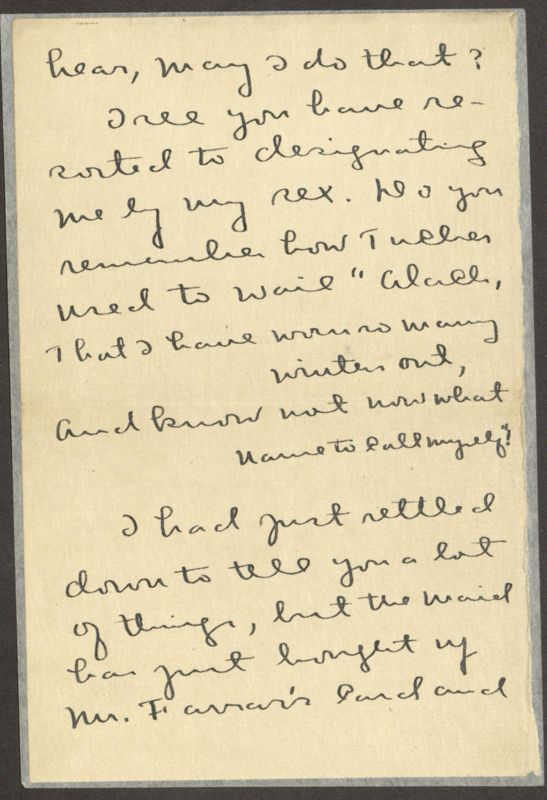 hear, may I do that?
I see you have re-
sorted to designating
me by my sex. Do you
remember how Tucker
used to wail "Alack,
That I have worn so many
winters out,
And know not now what
name to call myself"!
I had just settled
down to tell you a lot
of things, but the maid
has just bought up
Mr. Farrar's card and